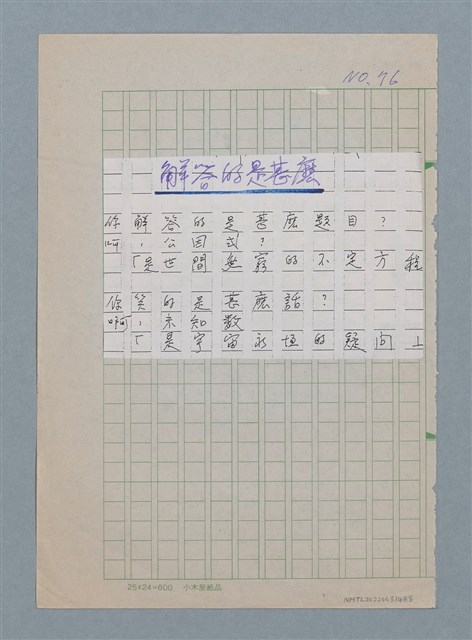 NO. 76
解答的是甚麼
你解答的是甚麼題目？
啊，公因式？
「是世間無窮的不定方程
你笑的是甚麼話？
啊，未知数
「是宇宙永恒的疑问」
25×24=600 小木屋紙品